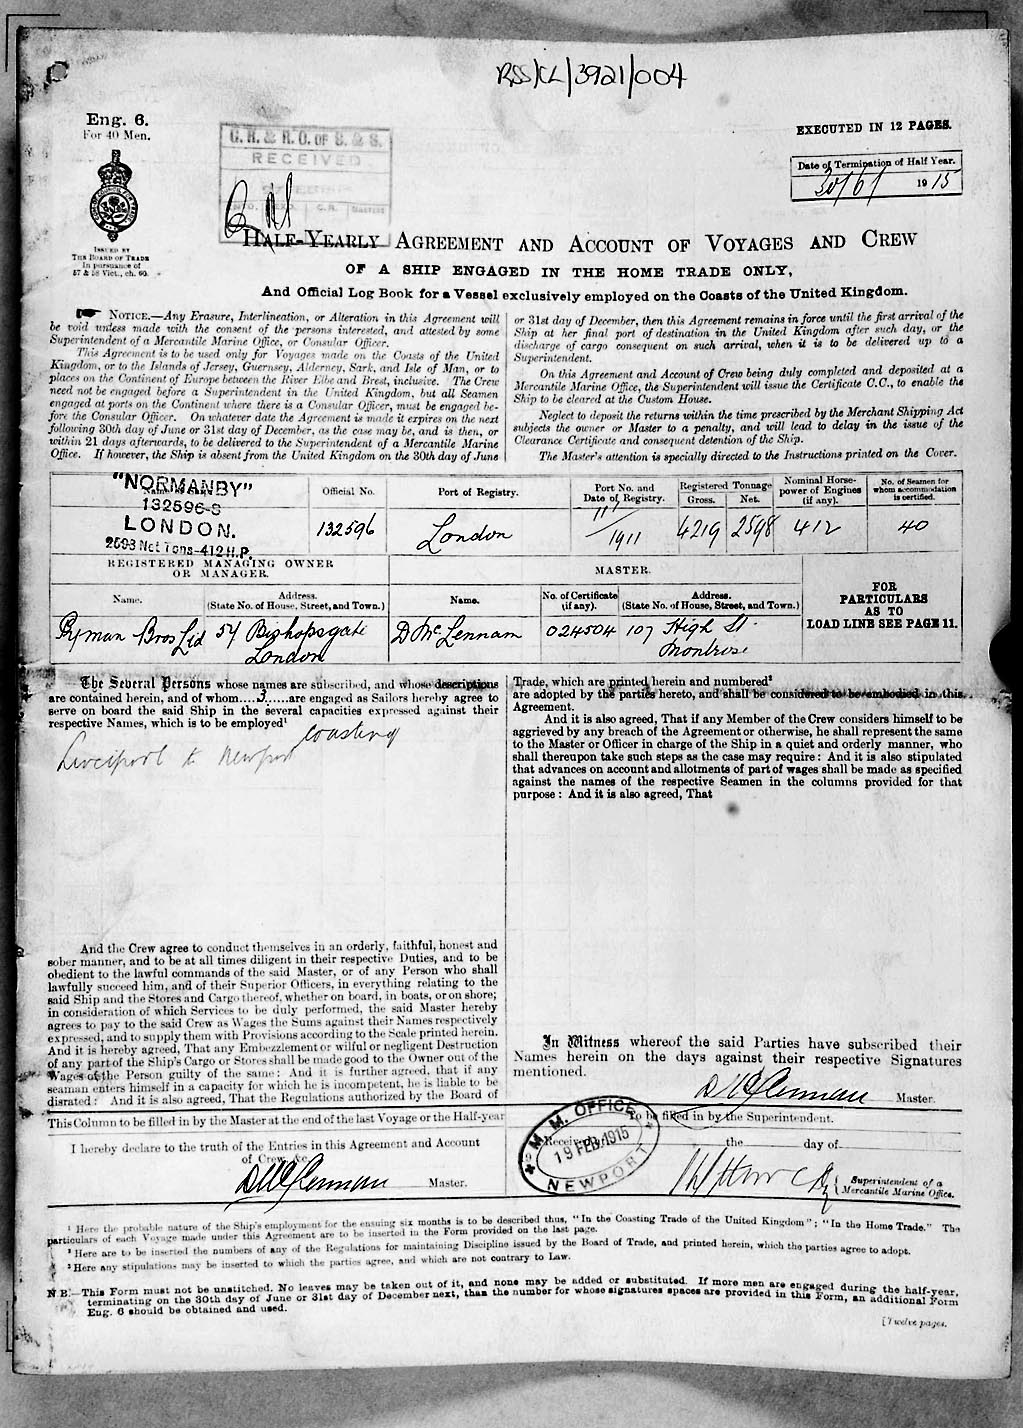 RSS/CL/3921/004
Eng. 6.
For 40 Men.
EXECUTED IN 12 PAGES.
C. R. & R. O. OF S. & S.
RECEIVED
C.R.
MASTERS
Date of Termination of Half Year.
30/6/ 1915
ISSUED BY
THE BOARD OF TRADE
In pursuance of
57 & 58 Vict., ch. 60.
HALF-YEARLY AGREEMENT AND ACCOUNT OF VOYAGES AND CREW
OF A SHIP ENGAGED IN THE HOME TRADE ONLY,
And Official Log Book for a Vessel exclusively employed on the Coasts of the United Kingdom.
NOTICE.—Any Erasure, Interlineation, or Alteration in this Agreement will
be void unless made with the consent of the persons interested, and attested by some
Superintendent of a Mercantile Marine Office, or Consular Officer.
This Agreement is to be used only for Voyages made on the Coasts of the United
Kingdom, or to the Islands of Jersey, Guernsey, Alderney, Sark, and Isle of Man, or to
places on the Continent of Europe between the River Elbe and Brest, inclusive. The Crew
need not be engaged before a Superintendent in the United Kingdom, but all Seamen
engaged at ports on the Continent where there is a Consular Officer, must be engaged be-
fore the Consular Officer. On whatever date the Agreement is made it expires on the next
following 30th day of June or 31st day of December, as the case may be, and is then, or
within 21 days afterwards, to be delivered to the Superintendent of a Mercantile Marine
Office. If however, the Ship is absent from the United Kingdom on the 30th day of June
or 31st day of December, then this Agreement remains in force until the first arrival of the
Ship at her final port of destination in the United Kingdom after such day, or the
discharge of cargo consequent on such arrival, when it is to be delivered up to a
Superintendent.
On this Agreement and Account of Crew being duly completed and deposited at a
Mercantile Marine Office, the Superintendent will issue the Certificate C.C., to enable the
Ship to be cleared at the Custom House.
Neglect to deposit the returns within the time prescribed by the Merchant Shipping Act
subjects the owner or Master to a penalty, and will lead to delay in the issue of the
Clearance Certificate and consequent detention of the Ship.
The Master's attention is specially directed to the Instructions printed on the Cover.
"NORMANBY"
132596-S
LONDON.
2598 Net Tons-412 H.P.
Official No.
132596
Port of Registry.
London
Port No. and
Date of Registry.
1911
Registered Tonnage
Gross. Net.
4219 2598
Nominal Horse-
power of Engines
(if any).
412
No. of Seamen for
whom accommodation
is certified.
40
REGISTERED MANAGING OWNER
OR MANAGER.
MASTER.
Name.
Address.
(State No. of House, Street, and Town.)
Name.
No. of Certificate
(if any).
Address.
(State No. of House, Street, and Town.)
FOR
PARTICULARS
AS TO
LOAD LINE SEE PAGE 11.
Ryman Bros Ltd 54 Bishopsgate
London
D McLennan 024504 107 High St
Montrose
The Several Persons whose names are subscribed, and whose descriptions
are contained herein, and of whom....3......are engaged as Sailors hereby agree to
serve on board the said Ship in the several capacities expressed against their
respective Names, which is to be employed¹
Coasting
Liverpool to Newport
And the Crew agree to conduct themselves in an orderly, faithful, honest and
sober manner, and to be at all times diligent in their respective Duties, and to be
obedient to the lawful commands of the said Master, or of any Person who shall
lawfully succeed him, and of their Superior Officers, in everything relating to the
said Ship and the Stores and Cargo thereof, whether on board, in boats, or on shore;
in consideration of which Services to be duly performed, the said Master hereby
agrees to pay to the said Crew as Wages the Sums against their Names respectively
expressed, and to supply them with Provisions according to the Scale printed herein.
And it is hereby agreed, That any Embezzlement or wilful or negligent Destruction
of any part of the Ship's Cargo or Stores shall be made good to the Owner out of the
Wages of the Person guilty of the same: And it is further agreed, that if any
seaman enters himself in a capacity for which he is incompetent, he is liable to be
disrated: And it is also agreed, That the Regulations authorized by the Board of
Trade, which are printed herein and numbered²
are adopted by the parties hereto, and shall be considered to be embodied in this
Agreement.
And it is also agreed, That if any Member of the Crew considers himself to be
aggrieved by any breach of the Agreement or otherwise, he shall represent the same
to the Master or Officer in charge of the Ship in a quiet and orderly manner, who
shall thereupon take such steps as the case may require: And it is also stipulated
that advances on account and allotments of part of wages shall be made as specified
against the names of the respective Seamen in the columns provided for that
purpose: And it is also agreed, That
In Witness whereof the said Parties have subscribed their
Names herein on the days against their respective Signatures
mentioned.
D McLennan Master.
This Column to be filled in by the Master at the end of the last Voyage or the Half-year
To be filled in by the Superintendent.
I hereby declare to the truth of the Entries in this Agreement and Account
of Crew, &c.
D McLennan Master.
M. M. OFFICE
19 FEB. 1915
NEWPORT
the day of
Superintendent of a
Mercantile Marine Office.
¹ Here the probable nature of the Ship's employment for the ensuing six months is to be described thus, "In the Coasting Trade of the United Kingdom"; "In the Home Trade." The
particulars of each Voyage made under this Agreement are to be inserted in the Form provided on the last page.
² Here are to be inserted the numbers of any of the Regulations for maintaining Discipline issued by the Board of Trade, and printed herein, which the parties agree to adopt.
³ Here any stipulations may be inserted to which the parties agree, and which are not contrary to Law.
N B.—This Form must not be unstitched. No leaves may be taken out of it, and none may be added or substituted. If more men are engaged during the half-year,
terminating on the 30th day of June or 31st day of December next, than the number for whose signatures spaces are provided in this Form, an additional Form
Eng. 6 should be obtained and used.
[Twelve pages.